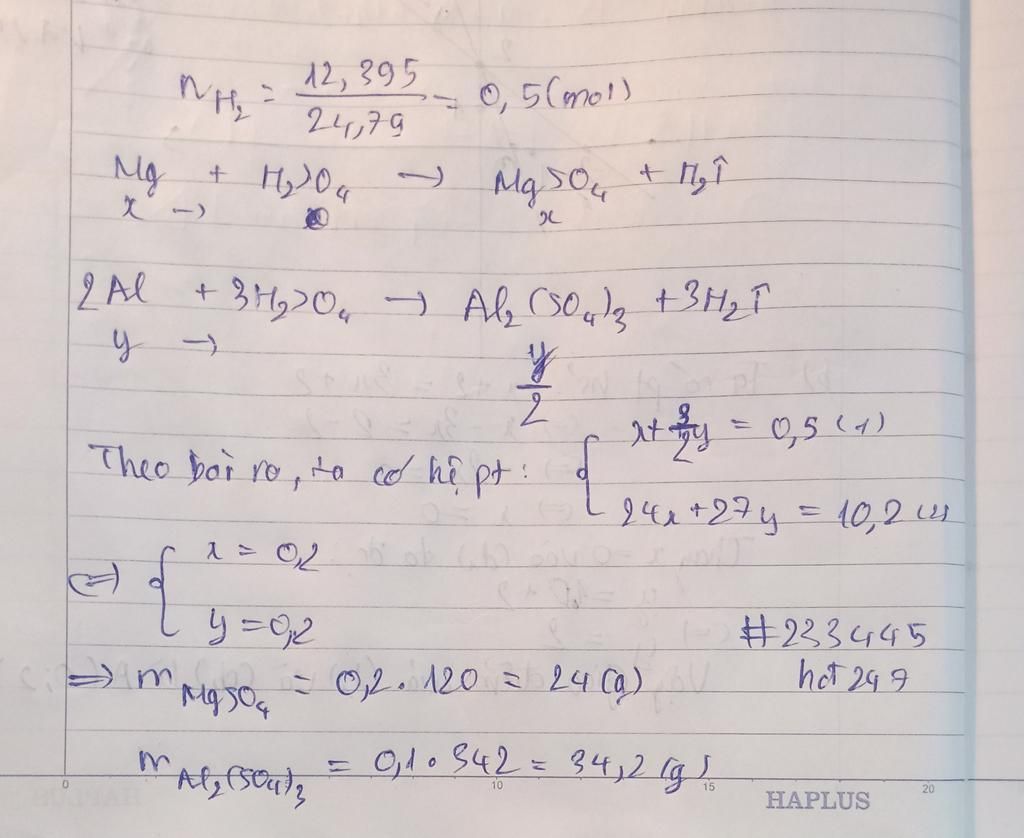 n H₂ = 12,395 / 24,79 = 0,5 (mol)
Mg + H₂SO₄ → MgSO₄ + H₂↑
x → x
2Al + 3H₂SO₄ → Al₂(SO₄)₃ + 3H₂↑
y → y/2
Theo bài ra, ta có hệ pt: { x + 3/2 y = 0,5 (1)
24x + 27y = 10,2 (2)
<=> { x = 0,2
y = 0,2
#233445
=> m MgSO₄ = 0,2 . 120 = 24 (g)
hot 247
m Al₂(SO₄)₃ = 0,1 . 342 = 34,2 (g)
0 10 15 20
HAPLUS